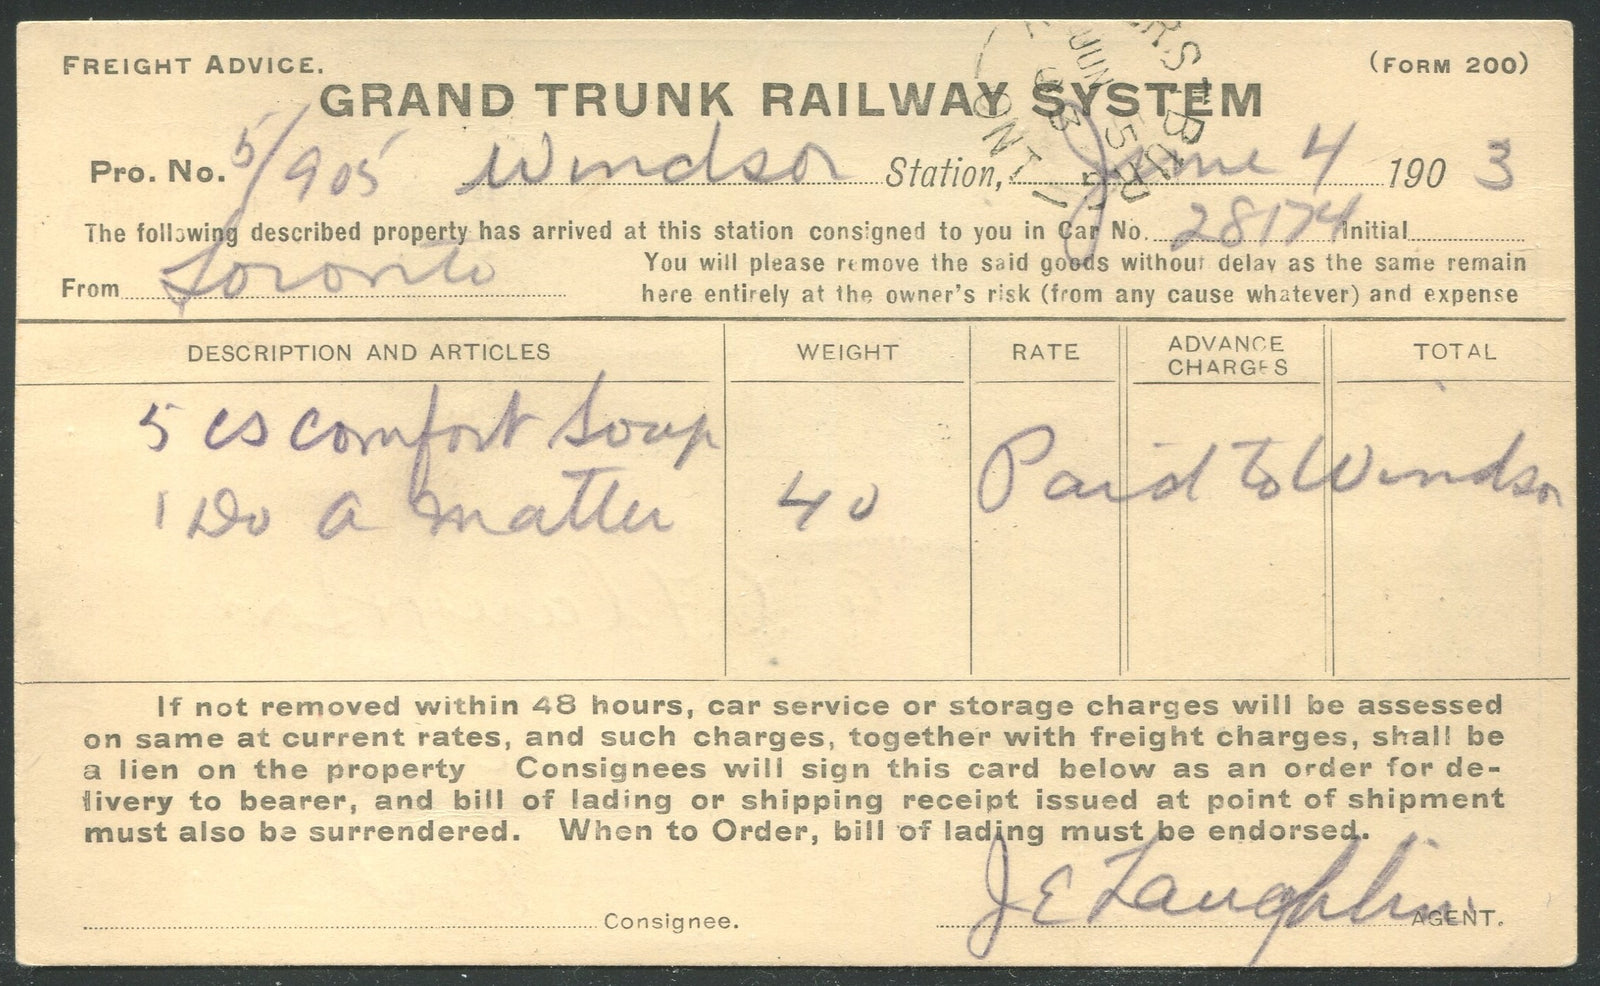 FREIGHT ADVICE.
(FORM 200)
GRAND TRUNK RAILWAY SYSTEM
AMHERSTBURG ONT
JUN 5 03
Pro. No. 5/905 Windsor Station, June 4 1903
The following described property has arrived at this station consigned to you in Car No. 28174 Initial
From Toronto
You will please remove the said goods without delay as the same remain
here entirely at the owner's risk (from any cause whatever) and expense
DESCRIPTION AND ARTICLES WEIGHT RATE ADVANCE CHARGES TOTAL
5 cs Comfort Soap
1 Do a matter 40 Paid to Windsor
If not removed within 48 hours, car service or storage charges will be assessed
on same at current rates, and such charges, together with freight charges, shall be
a lien on the property Consignees will sign this card below as an order for de-
livery to bearer, and bill of lading or shipping receipt issued at point of shipment
must also be surrendered. When to Order, bill of lading must be endorsed.
J E Laughlin
Consignee. AGENT.